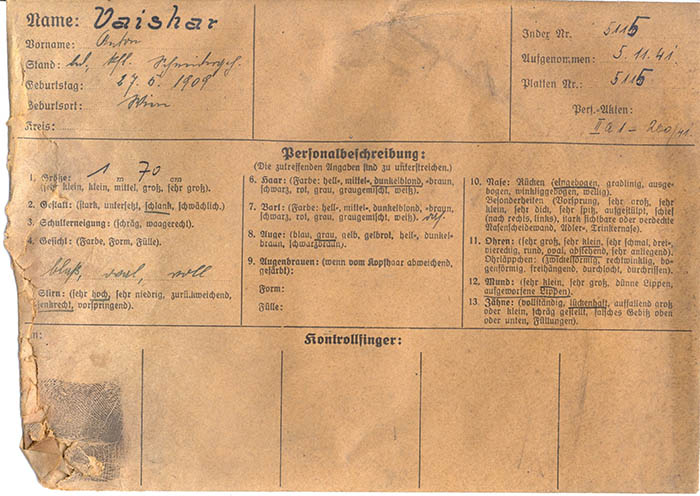 Name: Vaishar
Vorname: Anton
Stand: led. Kfl. Schneidergeh.
Geburtstag: 27. 6. 1909
Geburtsort: Wien
Kreis:
Index Nr. 5115
Aufgenommen: 5. 11. 41.
Platten Nr.: 5115
Pers.-Akten:
II a 1 – 280/41
Personalbeschreibung:
(Die zutreffenden Angaben sind zu unterstreichen.)
1. Größe: 1 m 70 cm
(sehr klein, klein, mittel, groß, sehr groß).
2. Gestalt: (stark, untersetzt, schlank, schwächlich.)
3. Schulterneigung: (schräg, waagerecht).
4. Gesicht: (Farbe, Form, Fülle).
blaß, oval, voll
Stirn: (sehr hoch, sehr niedrig, zurückweichend,
senkrecht, vorspringend).
6. Haar: (Farbe: hell-, mittel-, dunkelblond, -braun,
schwarz, rot, grau, graugemischt, weiß).
7. Bart: (Farbe: hell-, mittel-, dunkelblond, -braun,
schwarz, rot, grau, graugemischt, weiß).
8. Auge: (blau, grau, gelb, gelbrot, hell-, dunkel-
braun, schwarzbraun).
9. Augenbrauen: (wenn vom Kopfhaar abweichend,
gefärbt):
Form:
Fülle:
10. Nase: Rücken (eingebogen, gradlinig, ausge-
bogen, winkliggebogen, wellig).
Besonderheiten (Vorsprung, sehr groß, sehr
klein, sehr dick, sehr spitz, aufgestülpt, schief
(nach rechts, links), stark sichtbare oder verdeckte
Nasenscheidewand, Adler-, Trinkernase).
11. Ohren: (sehr groß, sehr klein, sehr schmal, drei-,
viereckig, rund, oval, abstehend, sehr anliegend).
Ohrläppchen: (zwickelförmig, rechtwinklig, bo-
genförmig, freihängend, durchlocht, durchrissen).
12. Mund: (sehr klein, sehr groß, dünne Lippen,
aufgeworfene Lippen).
13. Zähne: (vollständig, lückenhaft, auffallend groß
oder klein, schräg gestellt, falsches Gebiß oben
oder unten, Füllungen).
Kontrollfinger: